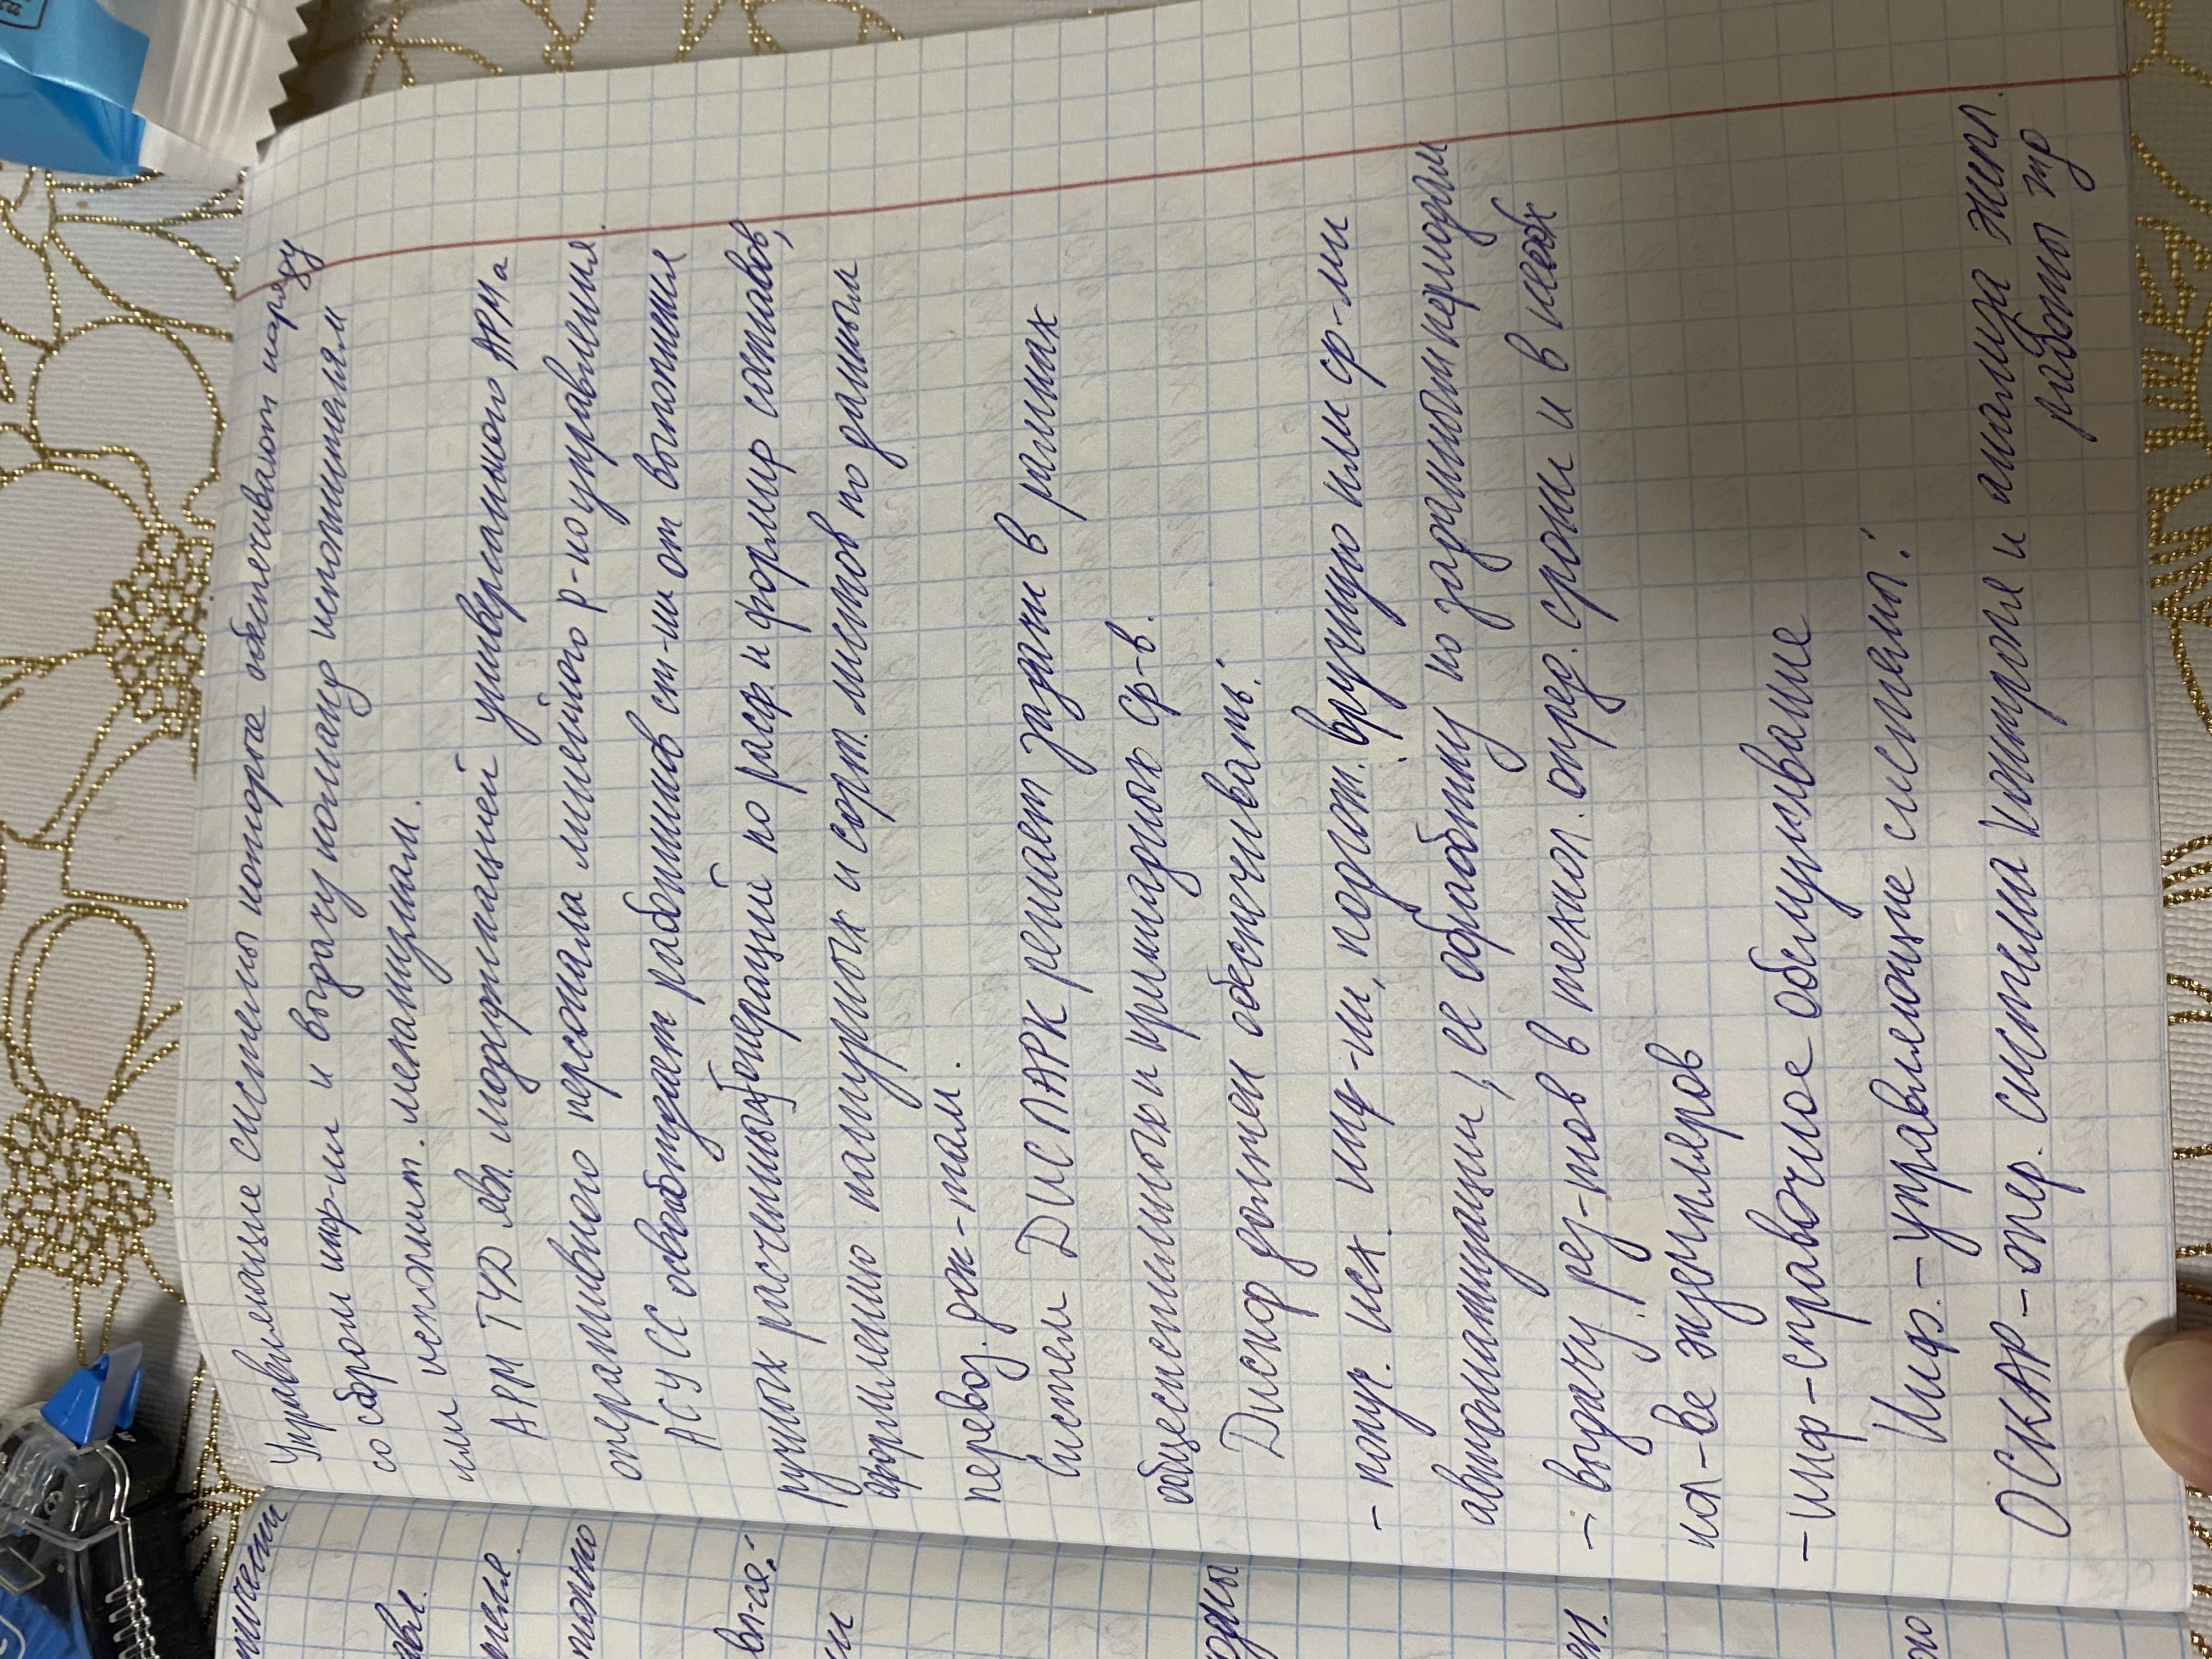 Управляющие системы которые обеспечивают наряду
со сбором инф-ии и выдачу команд исполнителям
или исполнит. механизмам.
АРМ ТЧД явл. модификацией универсального АРМ а
оперативного персонала линейного р-на управления.
АСУ СС освобождает работников ст-ии от выполнения
ручных расчетных операций по расф. и формир составов,
оформлению натурных и сорт. листов по данным
перевоз. док-там.
Систем ДИСПАРК решает задачи в рамках
общесетевых и
ср-в.
Дискор должен обеспечивать:
- получ. исх. инф-ии, подгот. вручную или ср-ми
автоматизации, ее обработку по заданным периодам
- выдачу рез-тов в технол. опред. сроки и в необх
кол-ве экземпляров
- инф-справочное обслуживание
Инф.- управляющие системы:
ОСКАР - опер. система контроля и анализа эксп.
работы жд
явл.
можно
вл-ся:
ии
ен.